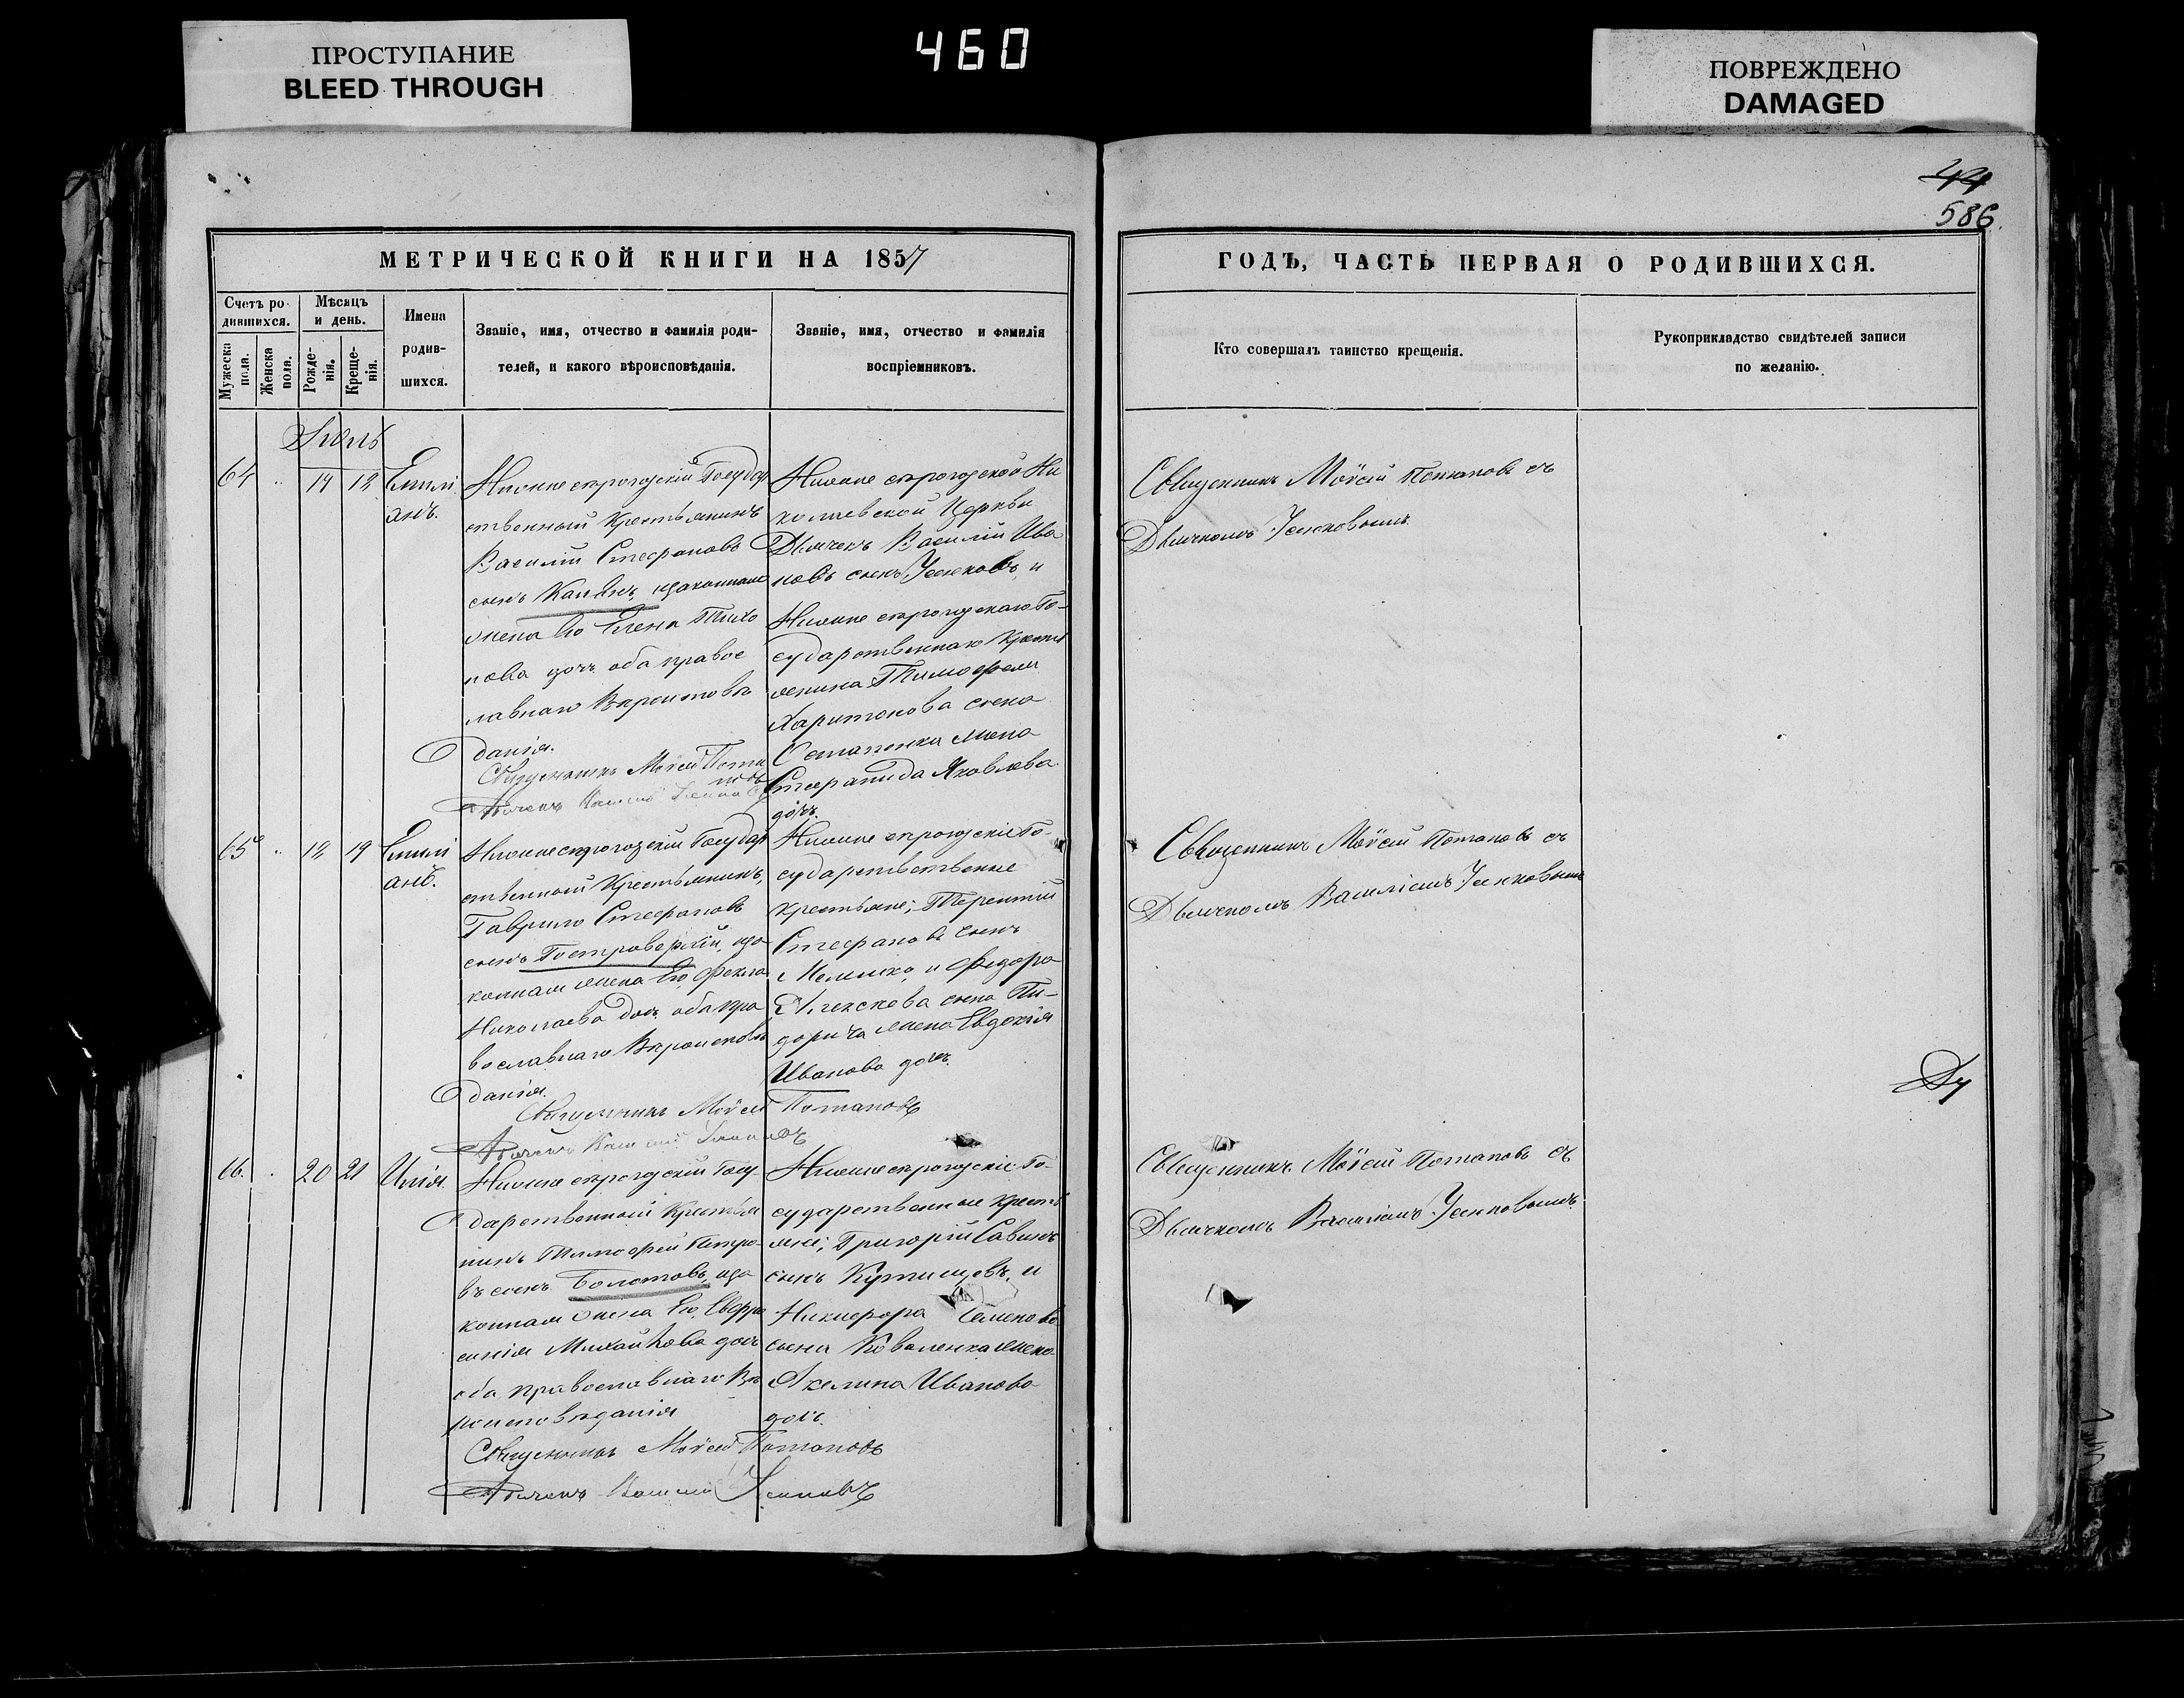 ПРОСТУПАНИЕ
BLEED THROUGH
460
ПОВРЕЖДЕНО
DAMAGED
44
586.
МЕТРИЧЕСКОЙ КНИГИ НА 1857
ГОДЪ, ЧАСТЬ ПЕРВАЯ О РОДИВШИХСЯ.
Счетъ ро-
дившихся.
Мужеска пола.
Женска пола.
Мѣсяцъ
и день.
Рожде-
нія.
Креще-
нія.
Имена
родив-
шихся.
Званіе, имя, отчество и фамилія роди-
телей, и какого вѣроисповѣданія.
Званіе, имя, отчество и фамилія
воспріемниковъ.
Кто совершалъ таинство крещенія.
Рукоприкладство свидѣтелей записи
по желанію.
Іюль
64 " 14 18
Емилі
анъ.
Государ
ственный Крестьянинъ
Василій Стефановъ
сынъ законная
жена Его Елена Тихо
нова дочь оба правос
лавнаго Вѣроисповѣ
данія.
Священникъ Моѵсей Пота
повъ
Дьячекъ Василій
Ни
колаевской Церкви
Дьячекъ Василій Ива
новъ сынъ и
Го-
сударственнаго Крестья
янина Тимофея
Харитонова сына
жена
Стефанида Яковлева
дочь.
Священникъ Моѵсей Потаповъ съ
Дьячкомъ
65 " 18 19
Емилі
анъ.
Государ
ственный Крестьянинъ,
Гаврило Стефановъ
сынъ за-
конная жена Его Фекла
Николаева дочь оба пра
вославнаго Вѣроисповѣ
данія.
Священникъ Моѵсей Потаповъ
Дьячекъ Василій
Го-
сударственные
Крестьяне; Терентій
Стефановъ сынъ
и Федора
сына
жена Евдокія
Иванова дочь.
Священникъ Моѵсей Потаповъ съ
Дьячкомъ Василіемъ
66. 20 21 Илія.
Госу-
дарственный Крестья
нинъ Тимофей Петро-
въ сынъ Болотовъ, за
конная жена Его, Евфро
синія Михайлова дочь
оба православнаго Вѣ
роисповѣданія
Священникъ Моѵсей Потаповъ
Дьячекъ Василій
Го-
сударственные Кресть
яне; Григорій Савинъ
сынъ и
Никифора Семенова
сына Коваленка жена
Акелина Иванова
дочь.
Священникъ Моѵсей Потаповъ съ
Дьячкомъ Василіемъ